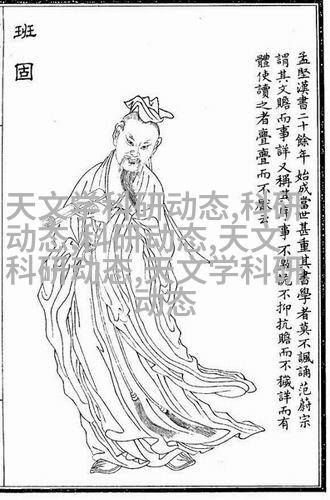 班固
孟堅漢書二十餘年始成當世甚重其書學者莫不諷誦范蔚宗
謂其文贍而事詳又稱其序事不詭不抑抗贍而不穢詳而有
體使讀之者亹亹而不厭云
天文学科研动态,科研
动态,科研动态,天文学
科研动态,天文学科研
动态